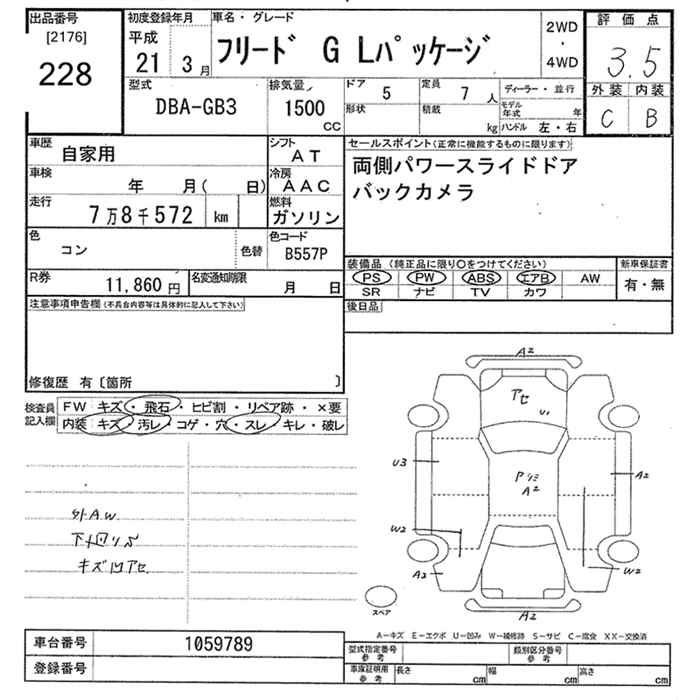 出品番号
[2176]
228
初度登録年月
平成
21 3月
車名・グレード
フリード G Lパッケージ
2WD
・
4WD
評価点
3.5
外装 内装
C B
型式
DBA-GB3
排気量
1500
CC
ドア 5
定員 7人
形状
積載 kg
ディーラー・並行
モデル年式 年
ハンドル 左・右
車歴
自家用
シフト
AT
車検
年 月( 日)
冷房
AAC
走行
7万8千572 km
燃料
ガソリン
色
コン
色替
色コード
B557P
R券
11,860円
名変通知期限
月 日
セールスポイント(正常に機能するものに限ります)
両側パワースライドドア
バックカメラ
装備品(純正品に限り○をつけてください)
PS PW ABS エアB AW
SR ナビ TV カワ
新車保証書
有・無
後日品
注意事項申告欄(不具合内容等は具体的に記入して下さい)
修復歴 有〔箇所 〕
検査員
記入欄
FW キズ・飛石・ヒビ割・リペア跡・×要
内装 キズ・汚レ・コゲ・穴・スレ・キレ・破レ
外A.W.
下廻りサビ
キズ凹アセ
A2
アセ
U1
U3
A2
A2
W2
W2
A2
A2
スペア
A−キズ E−エクボ U−凹み W−補修跡 S−サビ C−腐食 XX−交換済
車台番号
1059789
登録番号
型式指定番号
参考
類別区分番号
参考
車庫証明用
参考
長さ cm
幅 cm
高さ cm